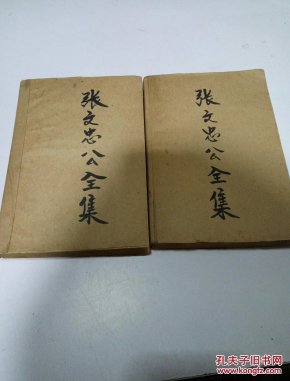 张文忠公全集
张文忠公全集
孔夫子旧书网